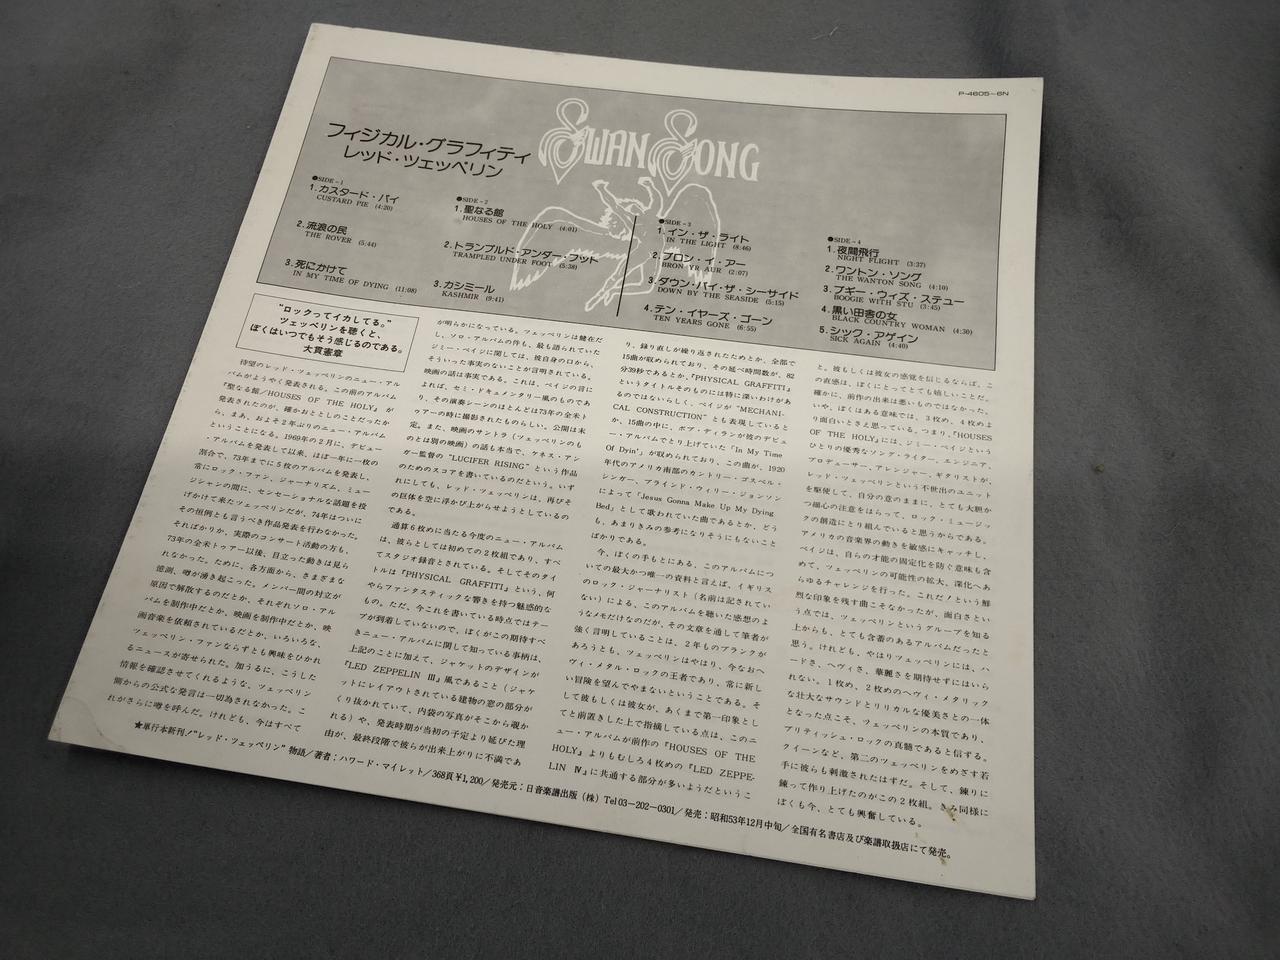 P-4605~6N
SWAN SONG
フィジカル・グラフィティ
レッド・ツェッペリン
●SIDE-1
1.カスタード・パイ
CUSTARD PIE (4:20)
2.流浪の民
THE ROVER (5:44)
3.死にかけて
IN MY TIME OF DYING (11:08)
●SIDE-2
1.聖なる館
HOUSES OF THE HOLY (4:01)
2.トランプルド・アンダー・フット
TRAMPLED UNDER FOOT (5:38)
3.カシミール
KASHMIR (9:41)
●SIDE-3
1.イン・ザ・ライト
IN THE LIGHT (8:46)
2.ブロン・イ・アー
BRON YR AUR (2:07)
3.ダウン・バイ・ザ・シーサイド
DOWN BY THE SEASIDE (5:15)
4.テン・イヤーズ・ゴーン
TEN YEARS GONE (6:55)
●SIDE-4
1.夜間飛行
NIGHT FLIGHT (3:37)
2.ワントン・ソング
THE WANTON SONG (4:10)
3.ブギー・ウィズ・ステュー
BOOGIE WITH STU (3:45)
4.黒い田舎の女
BLACK COUNTRY WOMAN (4:30)
5.シック・アゲイン
SICK AGAIN (4:40)
"ロックってイカしてる。"
ツェッペリンを聴くと、
ぼくはいつでもそう感じるのである。
大貫憲章
待望のレッド・ツェッペリンのニュー・アル
バムがようやく発表される。この前のアルバム
『聖なる館/HOUSES OF THE HOLY』が
発表されたのが、確かおととしのことだったか
ら、まあ、およそ2年ぶりのニュー・アルバム
ということになる。1969年の2月に、デビュー
・アルバムを発表して以来、ほぼ一年に一枚の
割合で、73年までに5枚のアルバムを発表し、
常にロック・ファン、ジャーナリズム、ミュー
ジシャンの間に、センセーショナルな話題を投
げかけて来たツェッペリンだが、74年はついに
その恒例とも言うべき作品発表を行わなかった。
そればかりか、実際のコンサート活動の方も、
73年の全米トゥアー以後、目立った動きは見ら
れなかった。ために、各方面から、さまざまな
憶測、噂が湧き起こった。メンバー間の対立が
原因で解散するのだとか、それぞれソロ・アル
バムを制作中だとか、映画を制作中だとか、映
画音楽を依頼されているだとか、いろいろな、
ツェッペリン・ファンならずとも興味をひかれ
るニュースが寄せられた。加うるに、こうした
情報を確認させてくれるような、ツェッペリン
側からの公式な発言は一切為されなかった。こ
れがさらに噂を呼んだ。けれども、今はすべて
が明らかになっている。ツェッペリンは健在だ
し、ソロ・アルバムの件も、最も語られていた
ジミー・ペイジに関しては、彼自身の口から、
そういった事実のないことが言明されている。
映画の話は事実である。これは、ペイジの言に
よれば、セミ・ドキュメンタリー風のものであ
り、その演奏シーンのほとんどは73年の全米ト
ゥアーの時に撮影されたものらしい。公開は未
定。また、映画のサントラ(ツェッペリンのも
のとは別の映画)の話も本当で、ケネス・アン
ガー監督の"LUCIFER RISING"という作品
のためのスコアを書いているのだという。いず
れにしても、レッド・ツェッペリンは、再びそ
の巨体を空に浮かび上がらせようとしているの
である。
通算6枚めに当たる今度のニュー・アルバム
は、彼らとしては初めての2枚組であり、すべ
てスタジオ録音とされている。そしてそのタイ
トルは『PHYSICAL GRAFFITI』という、何
やらファンタスティックな響きを持つ魅惑的な
もの。ただ、今これを書いている時点ではテー
プが到着していないので、ぼくがこの期待すべ
きニュー・アルバムに関して知っている事柄は、
上記のことに加えて、ジャケットのデザインが
『LED ZEPPELIN III』風であること(ジャケ
ットにレイアウトされている建物の窓の部分が
くり抜かれていて、内袋の写真がそこから覗か
れる)や、発表時期が当初の予定より延びた理
由が、最終段階で彼らが出来上がりに不満であ
り、録り直しが繰り返されたためとか、全部で
15曲が収められており、その延べ時間数が、82
分39秒であるとか、『PHYSICAL GRAFFITI』
というタイトルそのものには特に深いわけがあ
るのではないらしく、ペイジが"MECHANI-
CAL CONSTRUCTION"とも表現していると
か、15曲の中に、ボブ・ディランが彼のデビュ
ー・アルバムでとり上げていた「In My Time
Of Dyin'」が収められており、この曲が、1920
年代のアメリカ南部のカントリー・ゴスペル・
シンガー、ブラインド・ウィリー・ジョンソン
によって「Jesus Gonna Make Up My Dying
Bed」として歌われていた曲であるとか、どう
も、あまりきみの参考になりそうにもないこと
ばかりである。
今、ぼくの手もとにある、このアルバムにつ
いての最大かつ唯一の資料と言えば、イギリス
のロック・ジャーナリスト(名前は記されてい
ない)による、このアルバムを聴いた感想のよ
うなメモだけなのだが、その文章を通して筆者が
強く言明していることは、2年ものブランクが
あろうとも、ツェッペリンはやはり、今なおヘ
ヴィ・メタル・ロックの王者であり、常に新し
い冒険を望んでやまないということである。そ
して彼もしくは彼女が、あくまで第一印象とし
てと前置きした上で指摘している点は、このニ
ュー・アルバムが前作の『HOUSES OF THE
HOLY』よりもむしろ4枚めの『LED ZEPPE-
LIN IV』に共通する部分が多いようだというこ
と。彼もしくは彼女の感覚を信じるならば、こ
の直感は、ぼくにとってとても嬉しいことだ。
確かに、前作の出来は悪いものではなかった。
いや、ぼくはある意味では、3枚め、4枚めよ
り面白いとさえ思っている。つまり、『HOUSES
OF THE HOLY』には、ジミー・ペイジという
ひとりの優秀なソング・ライター、エンジニア、
プロデューサー、アレンジャー、ギタリストが、
レッド・ツェッペリンという不世出のユニット
を駆使して、自分の意のままに、とても大胆か
つ細心の注意をはらって、ロック・ミュージッ
クの創造にとり組んでいると思うからである。
アメリカの音楽界の動きを敏感にキャッチし、
ペイジは、自らの才能の固定化を防ぐ意味も含
めて、ツェッペリンの可能性の拡大、深化へあ
らゆるチャレンジを行った。これだ!という鮮
烈な印象を残す曲こそなかったが、面白さとい
う点では、ツェッペリンというグループを知る
上からも、とても含蓄のあるアルバムだったと
思う。けれども、やはりツェッペリンには、ハ
ードさ、ヘヴィさ、華麗さを期待せずにはいら
れない。1枚め、2枚めのヘヴィ・メタリック
な壮大なサウンドとリリカルな優美さとの一体
となった点こそ、ツェッペリンの本質であり、
ブリティッシュ・ロックの真髄であると信ずる。
クイーンなど、第二のツェッペリンをめざす若
手に彼らも刺激されたはずだ。そして、練りに
錬って作り上げたのがこの2枚組。きみ同様に
ぼくも今、とても興奮している。
★単行本新刊/"レッド・ツェッペリン"物語/著者:ハワード・マイレット/368頁¥1,200/発売元:日音楽譜出版(株)Tel03-202-0301/発売:昭和53年12月中旬/全国有名書店及び楽譜取扱店にて発売。